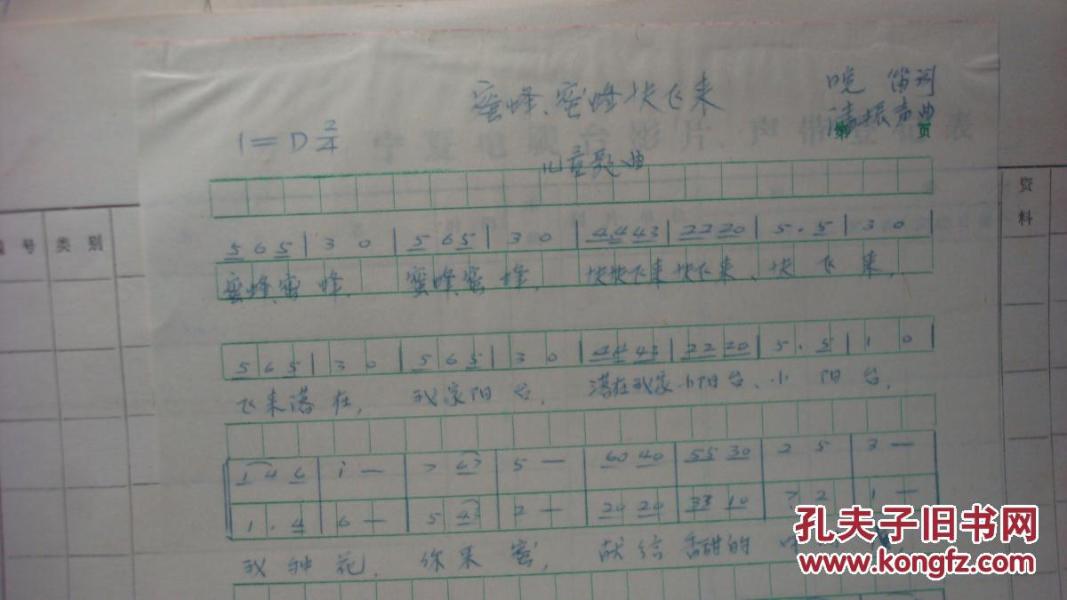 蜜蜂、蜜蜂快飞来
笛词
振声曲
页
1=D 2/4
儿童歌曲
号 类 别
资料
5 6 5 | 3 0 | 5 6 5 | 3 0 | 4443 | 2220 | 5. 5 | 3 0 |
蜜蜂、蜜蜂, 蜜蜂、蜜蜂, 快快飞来快飞来、快飞来,
5 6 5 | 3 0 | 5 6 5 | 3 0 | 44 43 | 22 20 | 5. 5 | 1 0 |
飞来落在, 我家阳台, 落在我家小阳台、小阳台,
1 4 6 | i — | 7 67 | 5 — | 60 40 | 55 30 | 2 5 | 3 — |
1. 4 | 6 — | 5 43 | 2 — | 20 20 | 33 10 | 7 2 | 1 — |
我种花, 你采蜜, 献给甜的
孔夫子旧书网
www.kongfz.com